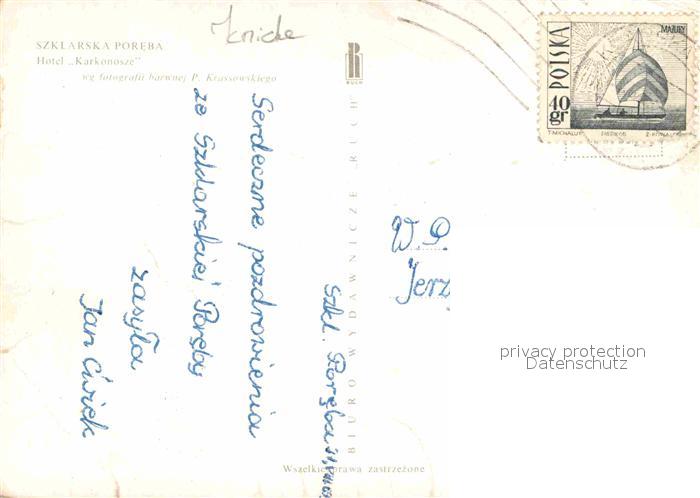 Knicke
SZKLARSKA PORĘBA
Hotel „Karkonosze”
wg fotografii barwnej P. Krassowskiego
RUCH
POLSKA
MAZURY
40 gr
T. MICHALUK
Serdeczne pozdrowienia
ze Szklarskiej Poręby
zasyła
Jan Ćwiek
Szkl. Poręba
BIURO WYDAWNICZE „RUCH”
W. P.
Jerz
privacy protection
Datenschutz
Wszelkie prawa zastrzeżone